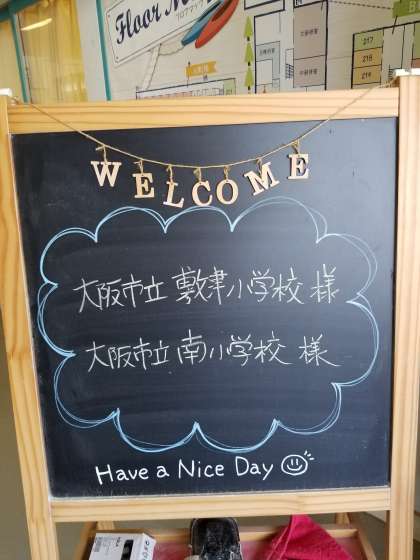 Floor M
フロアマップ
217
218
219
WELCOME
大阪市立 敷津小学校 様
大阪市立 南小学校 様
Have a Nice Day